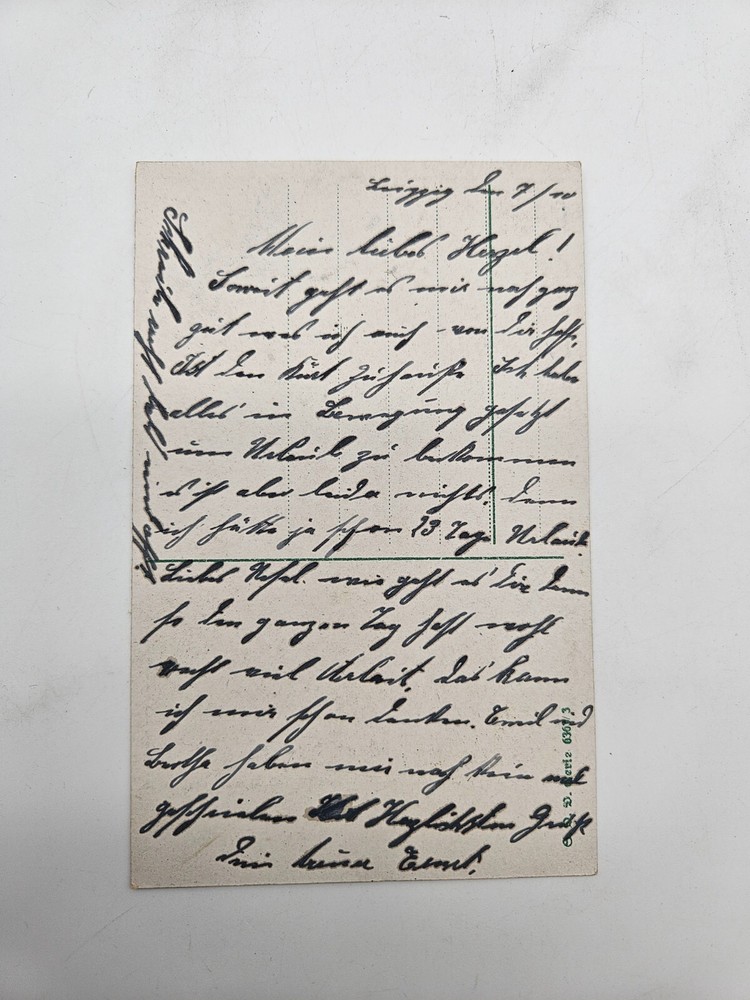 Leipzig den 7/10
Mein liebes Herzel!
Soweit geht es mir noch ganz
gut was ich auch von Dir hoffe.
Ist den Kurt zuhause Ich habe
alles in Bewegung gesetzt
um Urlaub zu bekommen
es ist aber leider nichts! denn
ich hätte ja schon 23 Tage Urlaub.
Liebes wie geht es Dir denn
so den ganzen Tag hast wohl
recht viel Arbeit, das kann
ich mir schon denken. Emil und
Bertha haben mir noch kein mal
geschrieben Mit Herzlichsten Gruß
Dein treuer Ernst.
Schreibe recht bald
Serie 6369/3